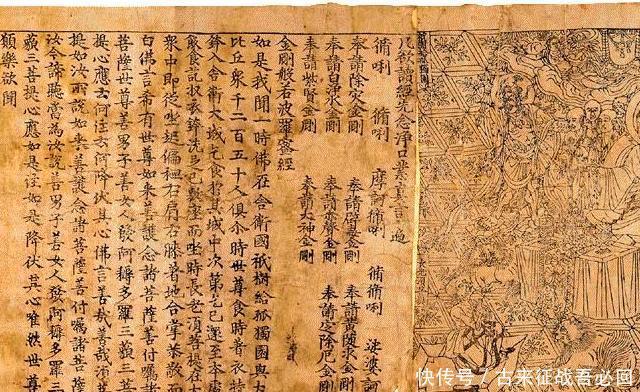 凡欲讀經先念淨口業真言一遍
脩唎 脩唎 摩訶脩唎 脩脩唎 娑婆訶
奉請除灾金剛 奉請辟毒金剛 奉請黃隨求金剛
奉請白淨水金剛 奉請赤聲金剛 奉請定除厄金剛
奉請紫賢金剛 奉請大神金剛
金剛般若波羅蜜經
如是我聞一時佛在舍衛國祇樹給孤獨園與大
比丘眾千二百五十人俱尒時世尊食時著衣持
鉢入舍衛大城乞食於其城中次第乞已還至本處
飯食訖收衣鉢洗足已敷座而坐時長老須菩提在大
眾中即從座起偏袒右肩右膝著地合掌恭敬而
白佛言希有世尊如來善護念諸菩薩善付囑諸
菩薩世尊善男子善女人發阿耨多羅三藐三菩
提心應云何住云何降伏其心佛言善哉善哉須菩
提如汝所說如來善護念諸菩薩善付囑諸菩薩
汝今諦聽當為汝說善男子善女人發阿耨多羅三
藐三菩提心應如是住如是降伏其心唯然世尊
願樂欲聞
快传号／古来征战吾必网